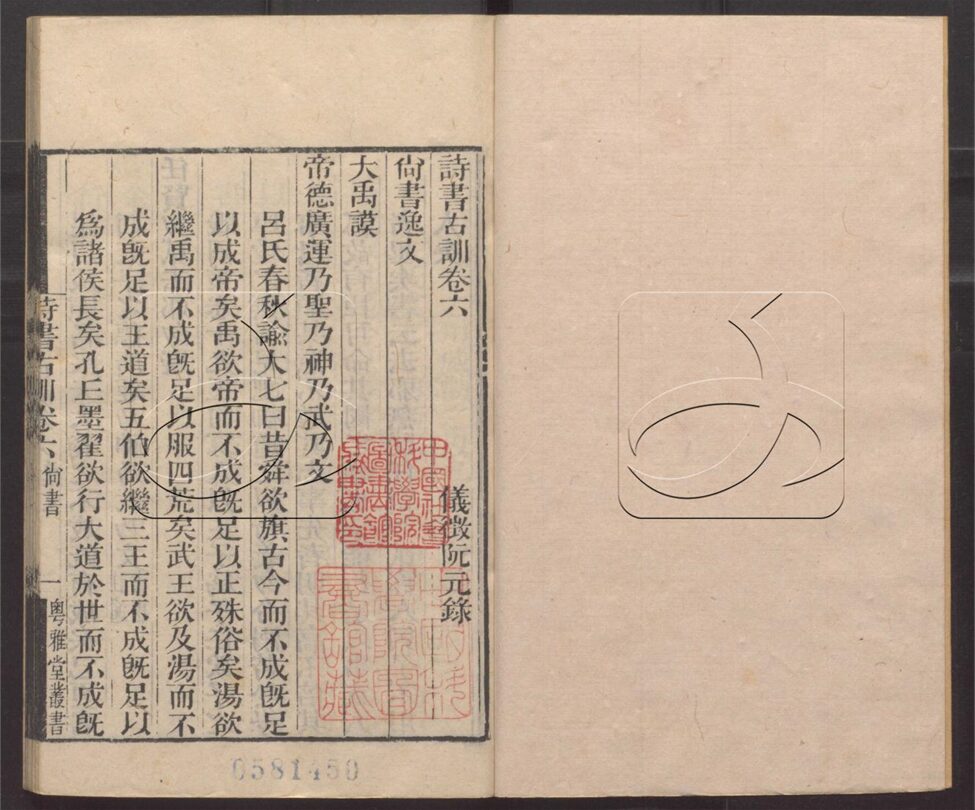 詩書古訓卷六
儀徴阮元錄
尙書逸文
大禹謨
帝德廣運乃聖乃神乃武乃文
呂氏春秋諭大七曰昔舜欲旗古今而不成旣足
以成帝矣禹欲帝而不成旣足以正殊俗矣湯欲
繼禹而不成旣足以服四荒矣武王欲及湯而不
成旣足以王道矣五伯欲繼三王而不成旣足以
爲諸侯長矣孔丘墨翟欲行大道於世而不成旣
詩書古訓卷六 尙書 一 粤雅堂叢書
0581450